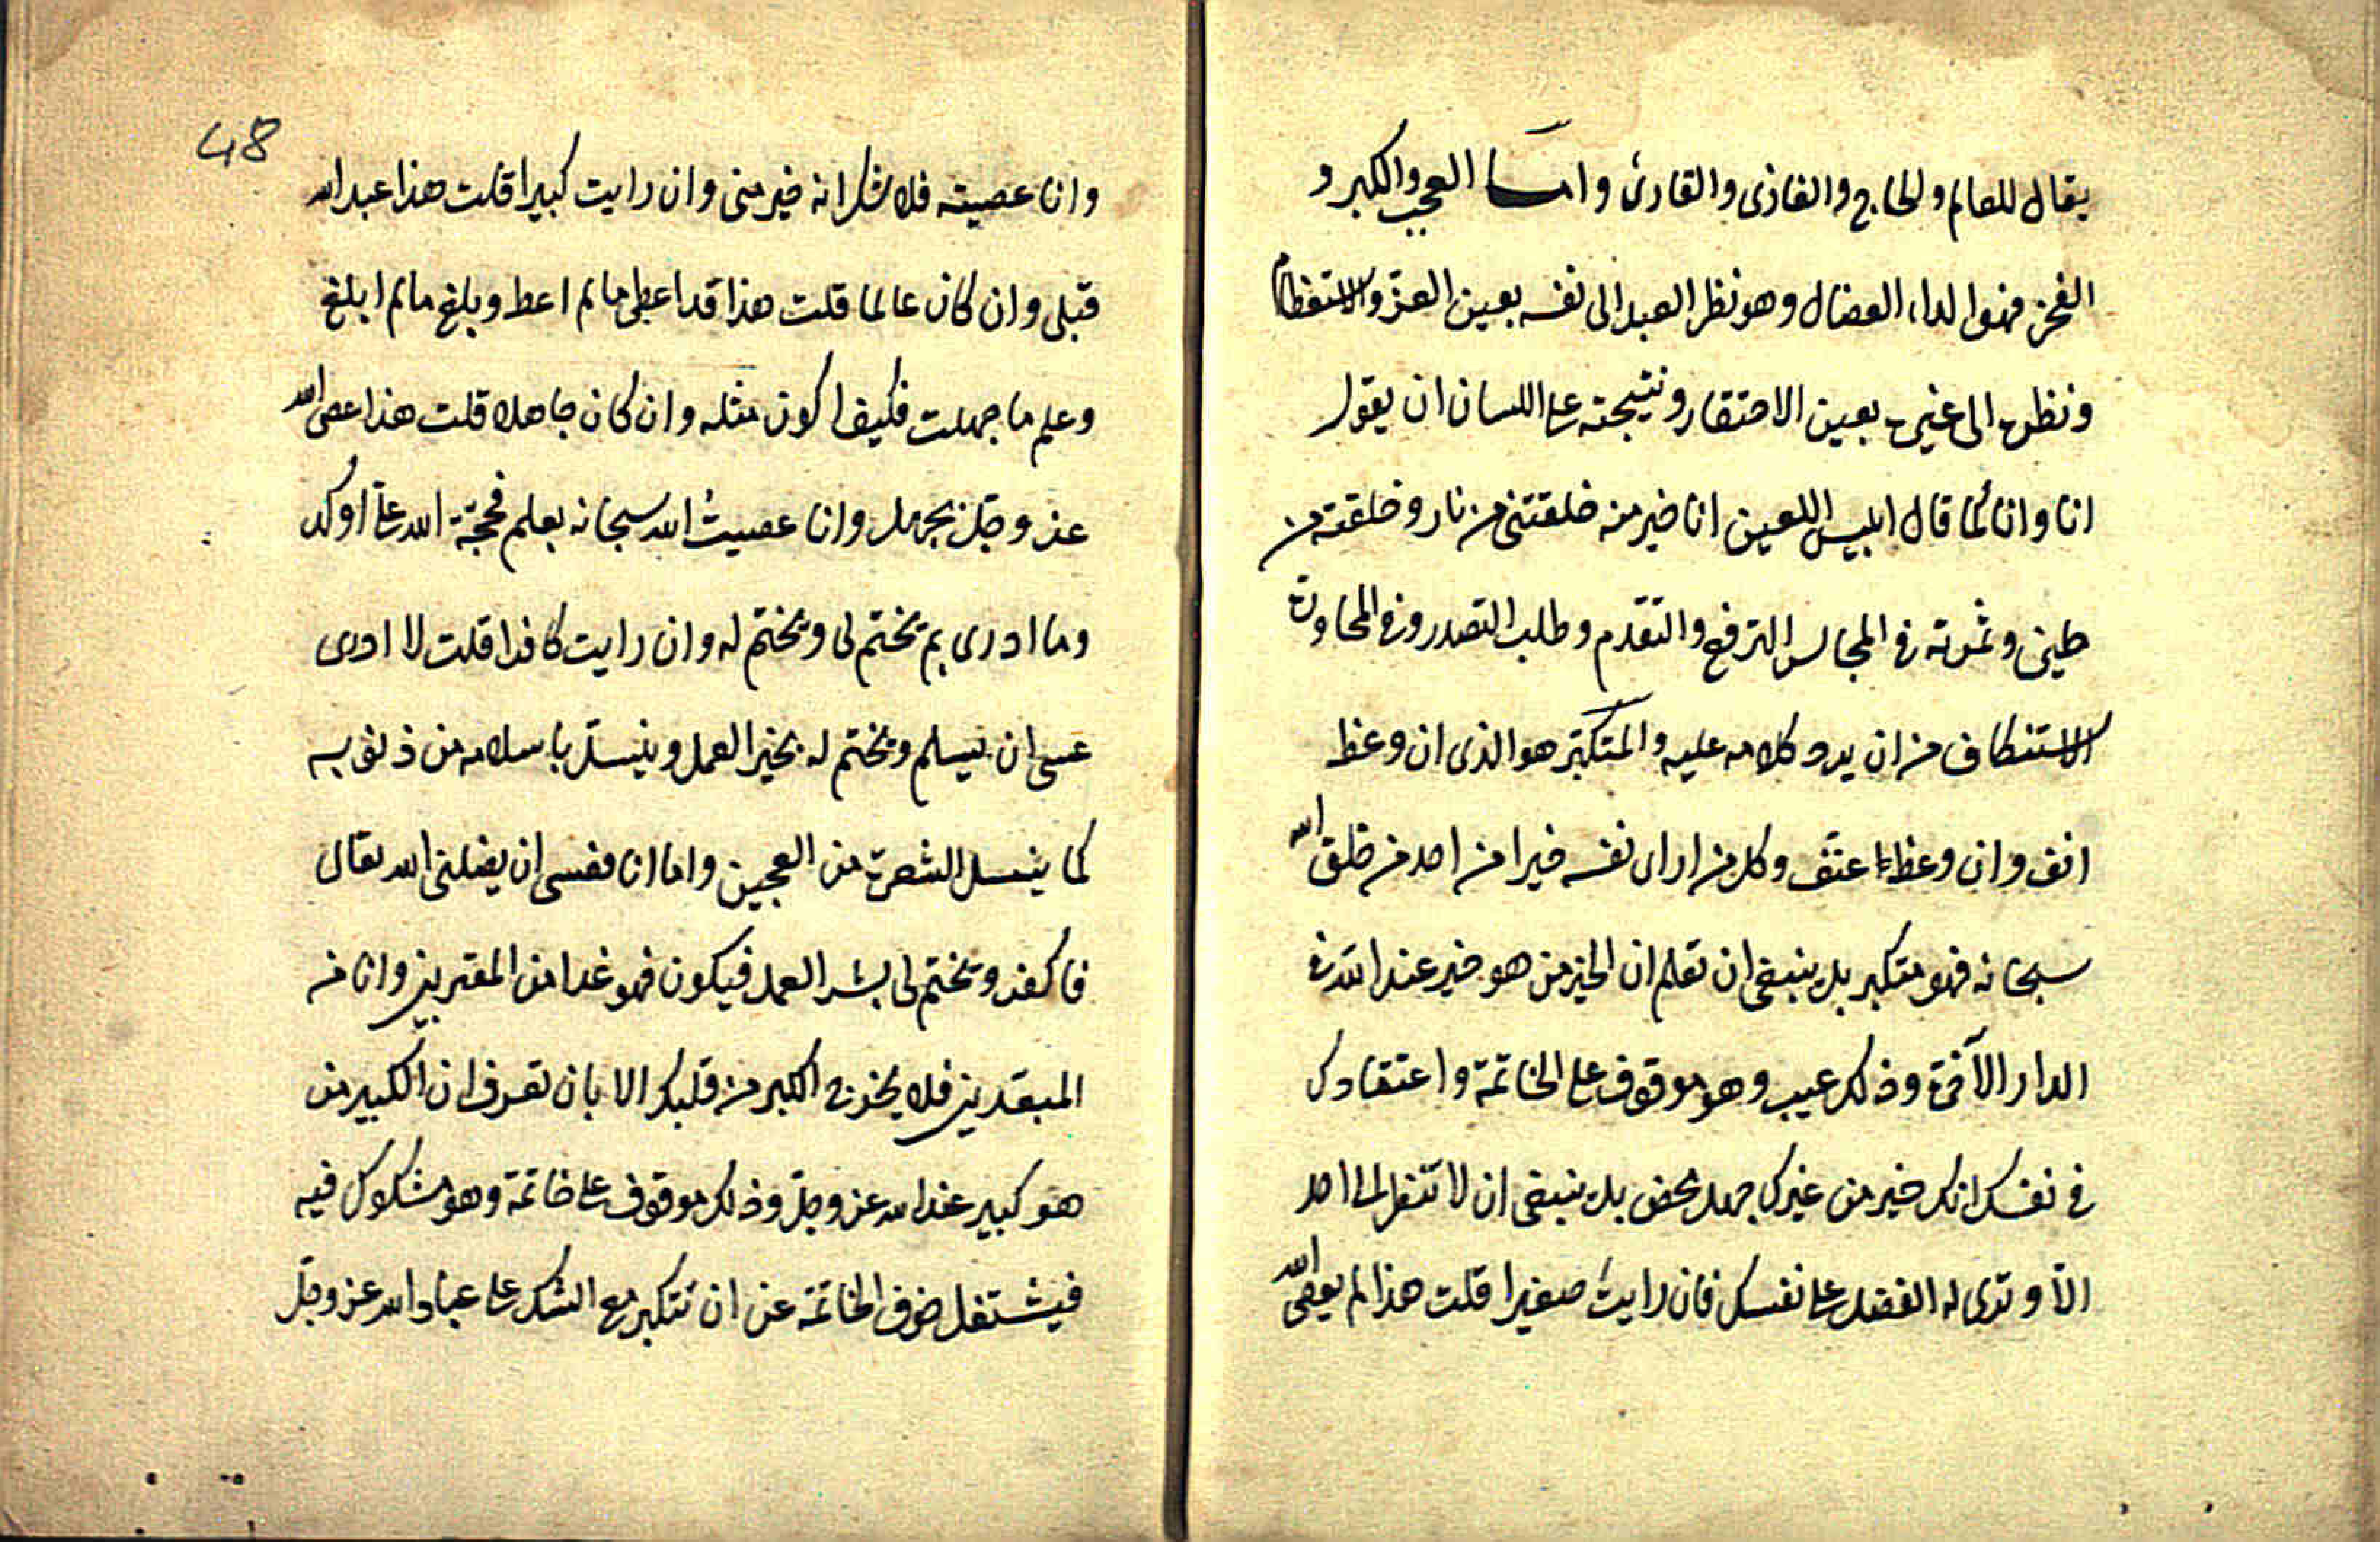 يقال للعالم والحاج والغازى والقارئ واما العجب والكبر و
الفخر فهو الداء العضال وهو نظر العبد الى نفسه بعين العز والاستعظام
ونظره الى غيره بعين الاحتقار ونتيجته على اللسان ان يقول
انا وانا كما قال ابليس اللعين انا خير منه خلقتنى من نار وخلقته من
طين وثمرته فى المجالس الترفع والتقدم وطلب التصدر وفى المحاورة
الاستنكاف من ان يرد كلامه عليه والمتكبّر هو الذى ان وعظ
انف وان وعظ عنّف وكل من اراى نفسه خيرا من احد من خلق الله
سبحانه فهو متكبر بل ينبغى ان تعلم ان الخير من هو خير عند الله فى
الدار الآخرة وذلك غيب وهو موقوف على الخاتمة واعتقادك
فى نفسك انك خير من غيرك جهل محض بل ينبغى ان لا تنظر الى احد
الّا وترى له الفضل على نفسك فان رايت صغيرا قلت هذا لم يعصى الله
48
وانا عصيته فلا شك انه خير منى وان رايت كبيرا قلت هذا عبد الله
قبلى وان كان عالما قلت هذا قد اعطى ما لم اعط وبلغ ما لم ابلغ
وعلم ما جهلت فكيف اكون مثله وان كان جاهلا قلت هذا عصى الله
عز وجل بجهل وانا عصيت الله سبحانه بعلم فحجّة الله علىّ اوكد
وما ادرى بم يختم لى ويختم له وان رايت كافرا قلت لا ادرى
عسى ان يسلم ويختم له بخير العمل وينسلّ باسلامه من ذنوبه
كما ينسل الشعرة من العجين واما انا فعسى ان يضلنى الله تعالى
فاكفر ويختم لى بشر العمل فيكون فهو غدا من المقربين وانا من
المبعدين فلا يخرج الكبر من قلبك الا بان تعرف ان الكبير من
هو كبير عند الله عز وجلّ وذلك موقوف على خاتمة وهو مشكوك فيه
فيشتغل خوف الخاتمة عن ان تتكبر مع الشك على عباد الله عز وجلّ